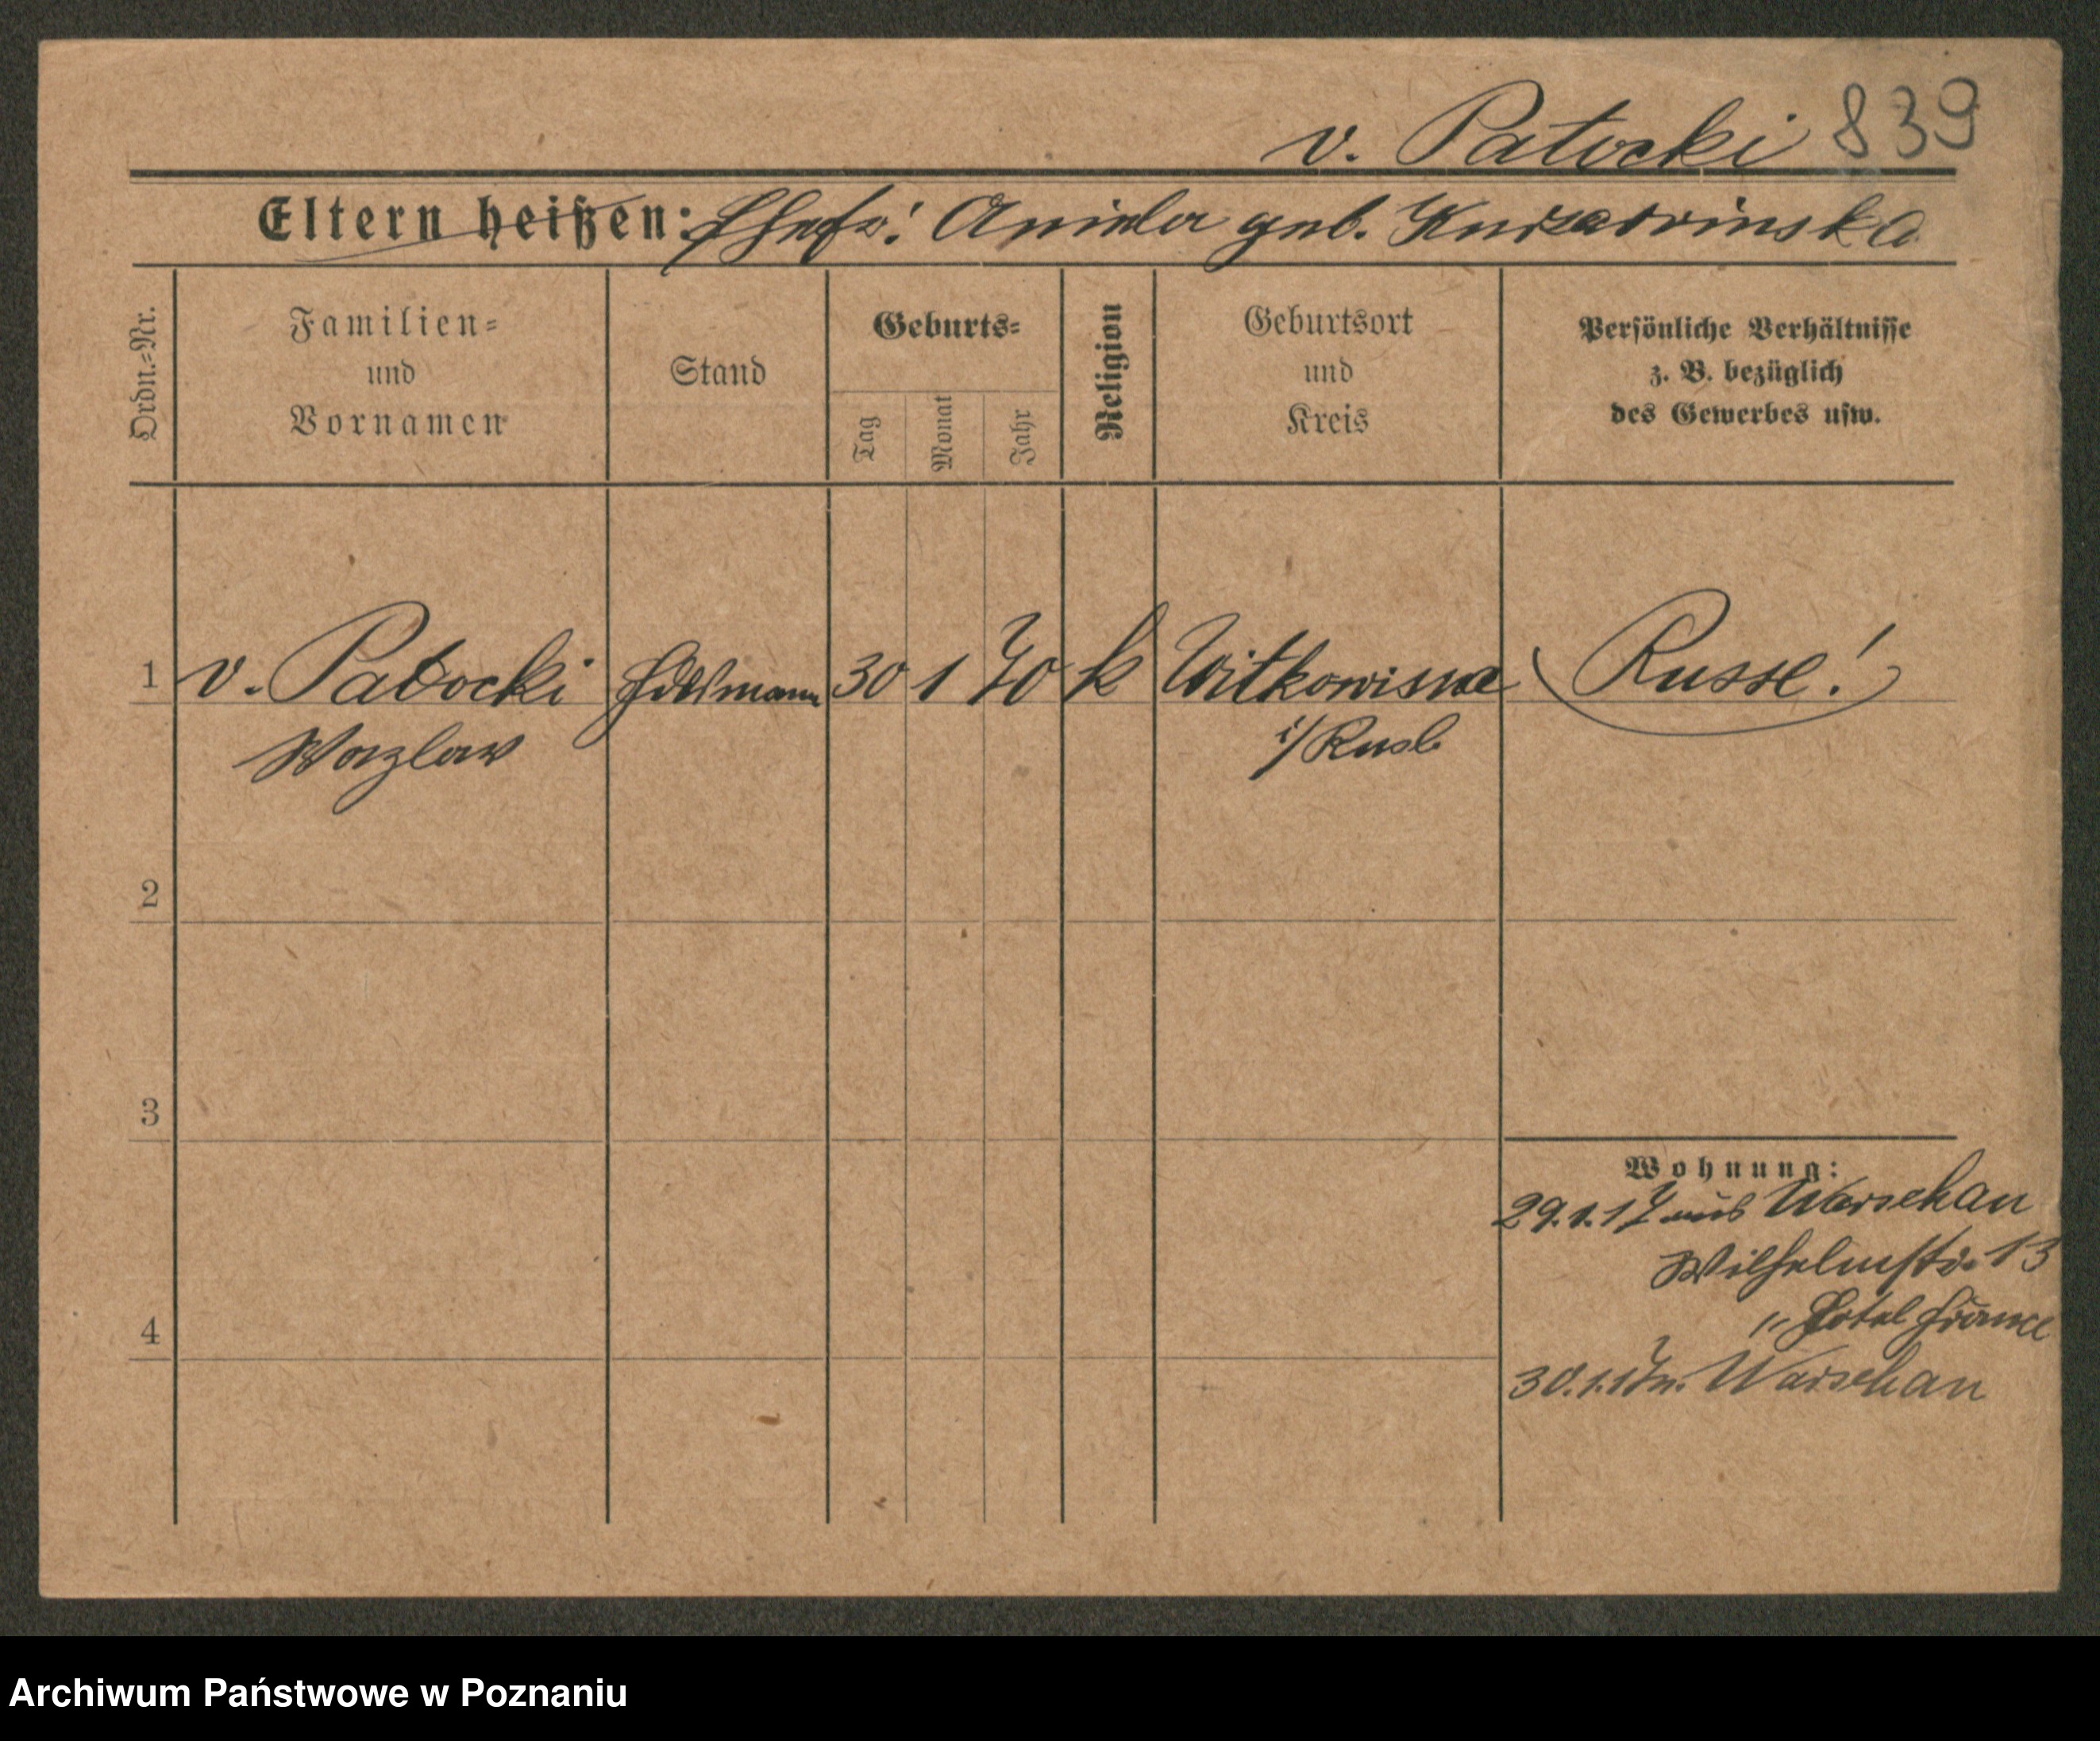 v. Patocki 839
Eltern heißen: Ehefr: Aniela geb.
Ordn.=Nr.
Familien=
und
Vornamen
Stand
Geburts=
Tag
Monat
Jahr
Religion
Geburtsort
und
Kreis
Persönliche Verhältnisse
z. B. bezüglich
des Gewerbes usw.
1 v. Patocki Edelmann 30 1 70 k Russe!
Wazlaw i/Rusl
2
3
4
Wohnung:
29.1.17 aus Warschau
Wilhelmstr. 13
" Hotel France
30.1.17 n. Warschau
Archiwum Państwowe w Poznaniu